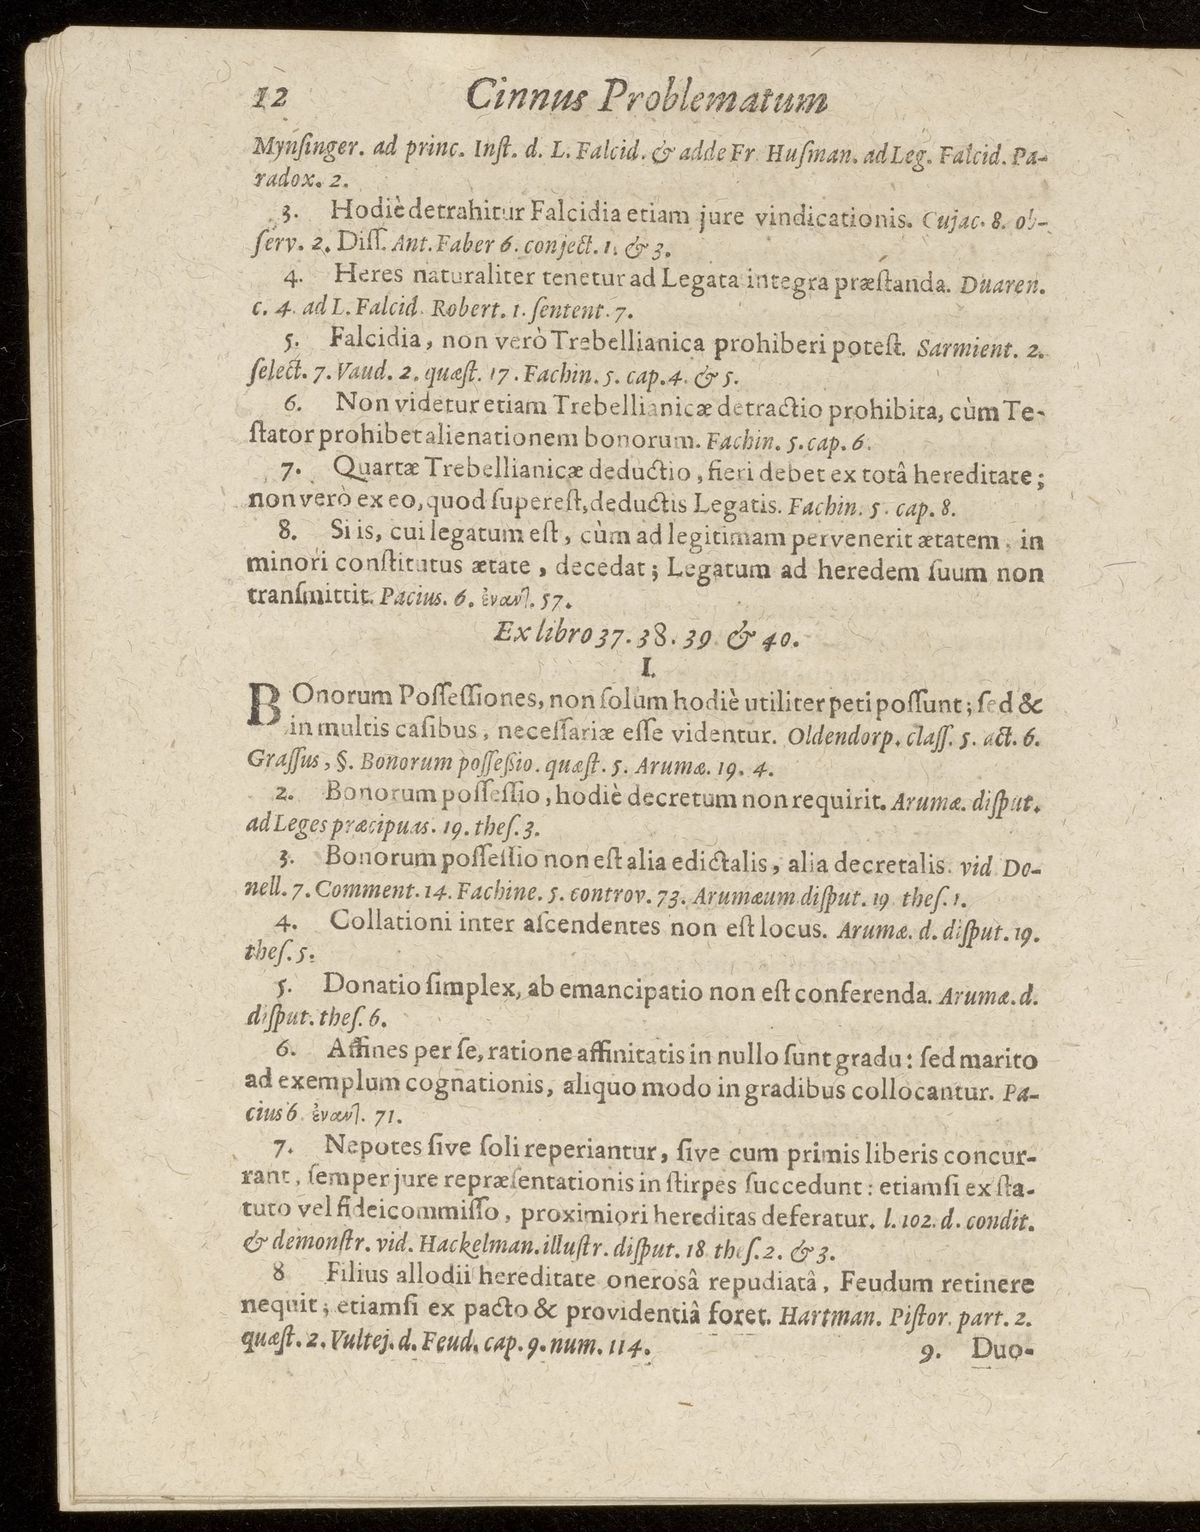 12 Cinnus Problematum
Mynſinger. ad princ. Inſt. d. L. Falcid. & adde Fr. Huſman. ad Leg. Falcid. Pa-
radox. 2.
3. Hodiè detrahitur Falcidia etiam jure vindicationis. Cujac. 8. ob-
ſerv. 2. Diſſ. Ant. Faber 6. conject. 1. & 3.
4. Heres naturaliter tenetur ad Legata integra præſtanda. Duaren.
c. 4. ad L. Falcid. Robert. 1. ſentent. 7.
5. Falcidia, non verò Trebellianica prohiberi poteſt. Sarmient. 2.
ſelect. 7. Vaud. 2. quæſt. 17. Fachin. 5. cap. 4. & 5.
6. Non videtur etiam Trebellianicæ detractio prohibita, cùm Te-
ſtator prohibet alienationem bonorum. Fachin. 5. cap. 6.
7. Quartæ Trebellianicæ deductio, fieri debet ex totâ hereditate;
non verò ex eo, quod ſupereſt, deductis Legatis. Fachin. 5. cap. 8.
8. Si is, cui legatum eſt, cùm ad legitimam pervenerit ætatem, in
minori conſtitutus ætate, decedat; Legatum ad heredem ſuum non
tranſmittit. Pacius. 6. ἐναντ. 57.
Ex libro 37. 38. 39 & 40.
I.
BOnorum Poſſeſſiones, non ſolùm hodiè utiliter peti poſſunt; ſed &
in multis caſibus, neceſſariæ eſſe videntur. Oldendorp. claſſ. 5. act. 6.
Graſſus, §. Bonorum poſſeßio. quæſt. 5. Arumæ. 19. 4.
2. Bonorum poſſeſſio, hodiè decretum non requirit. Arumæ. diſput.
ad Leges præcipuas. 19. theſ. 3.
3. Bonorum poſſeſſio non eſt alia edictalis, alia decretalis. vid. Do-
nell. 7. Comment. 14. Fachine. 5. controv. 73. Arumæum diſput. 19 theſ. 1.
4. Collationi inter aſcendentes non eſt locus. Arumæ. d. diſput. 19.
theſ. 5.
5. Donatio ſimplex, ab emancipatio non eſt conferenda. Arumæ. d.
diſput. theſ. 6.
6. Affines per ſe, ratione affinitatis in nullo ſunt gradu: ſed marito
ad exemplum cognationis, aliquo modo in gradibus collocantur. Pa-
cius 6. ἐναντ. 71.
7. Nepotes ſive ſoli reperiantur, ſive cum primis liberis concur-
rant, ſemper jure repræſentationis in ſtirpes ſuccedunt: etiamſi ex ſta-
tuto vel fideicommiſſo, proximiori hereditas deferatur. l. 102. d. condit.
& demonſtr. vid. Hackelman. illuſtr. diſput. 18 theſ. 2. & 3.
8 Filius allodii hereditate onerosâ repudiatâ, Feudum retinere
nequit; etiamſi ex pacto & providentiâ foret. Hartman. Piſtor. part. 2.
quæſt. 2. Vultej. d. Feud. cap. 9. num. 114.
9. Duo-